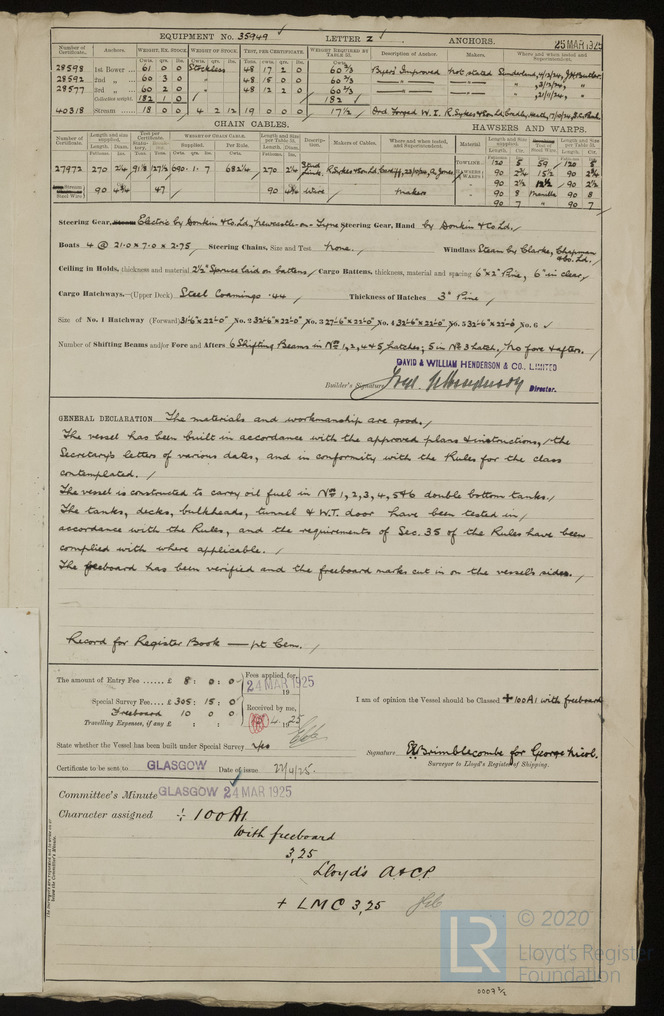 EQUIPMENT No. 35949 LETTER Z ANCHORS. 25 MAR 1925
Number of Certificate. Anchors. WEIGHT, EX. STOCK. WEIGHT OF STOCK. TEST, PER CERTIFICATE. WEIGHT REQUIRED BY TABLE 31. Description of Anchor. Makers. Where and when tested and Superintendent.
28598 1st Bower 61 0 0 Stockless 48 17 2 0 60 2/3 Byers' Improved not stated Sunderland, 4/12/24,
28592 2nd „ 60 3 0 „ 48 15 0 0 60 2/3 3/12/24, „
28577 3rd „ 60 2 0 „ 48 12 2 0 60 2/3 21/11/24, „
Collective weight. 182 1 0 182
40318 Stream 18 0 0 4 2 12 19 0 0 0 17 1/2 Ord. Forged W. I. R. Sykes & Son Ld. Cradley Heath, 7/10/24,
CHAIN CABLES. HAWSERS AND WARPS.
Number of Certificate. Length and size supplied. Test per Certificate. WEIGHT OF CHAIN CABLE. Length and Size per Table 31. Description. Makers of Cables. Where and when tested, and Superintendent. Material Length and Size supplied. Length and Size per Table 31.
27972 270 2 1/4 91 1/8 127 1/2 690 . 1 . 7 682 1/4 270 2 1/4 Stud Link. R. Sykes & Son Ld. Cardiff, 23/10/24, A. Jones
90 4 3/4 47 90 4 3/4 Wire makers
TOWLINE 120 5 59 120 5
HAWSERS & WARPS 90 2 3/4 15 1/2 90 2 3/4
„ 90 2 1/2 12 1/2 90 2 1/2
„ 90 8 Manilla 90 8
„ 90 7 „ 90 7
Steering Gear, Electric by Donkin & Co. Ld., Newcastle-on-Tyne Steering Gear, Hand by Donkin & Co. Ld.
Boats 4 @ 21.0 x 7.0 x 2.75 Steering Chains, Size and Test None. Windlass Steam by Clarke, Chapman & Co. Ld.
Ceiling in Holds, thickness and material 2 1/2" Spruce laid on battens Cargo Battens, thickness, material and spacing 6" x 2" Pine, 6" in clear
Cargo Hatchways.—(Upper Deck) Steel Coamings .44 Thickness of Hatches 3" Pine
Size of No. 1 Hatchway (Forward) 31'-6" x 22'-0" No. 2 32'-6" x 22'-0" No. 3 27'-6" x 22'-0" No. 4 32'-6" x 22'-0" No. 5 32'-6" x 22'-0 No. 6
Number of Shifting Beams and/or Fore and Afters 6 Shifting Beams in Nos 1, 2, 4 & 5 hatches; 5 in No 3 hatch. No fore & afters.
DAVID & WILLIAM HENDERSON & CO., LIMITED
Builder's Signature Director.
GENERAL DECLARATION The materials and workmanship are good.
The vessel has been built in accordance with the approved plans & instructions, the
Secretary's letters of various dates, and in conformity with the Rules for the class
contemplated.
The vessel is constructed to carry oil fuel in Nos 1, 2, 3, 4, 5 & 6 double bottom tanks.
The tanks, decks, bulkheads, tunnel & W.T. door have been tested in
accordance with the Rules, and the requirements of Sec. 35 of the Rules have been
complied with where applicable.
The freeboard has been verified and the freeboard marks cut in on the vessel's sides.
Record for Register Book — pt Cem.
The amount of Entry Fee ...... £ 8 : 0 : 0 Fees applied for, 24 MAR 1925
Special Survey Fee.... £ 305 : 15 : 0 Received by me,
Freeboard 10 0 0
Travelling Expenses, if any £ : : 4. 1925
I am of opinion the Vessel should be Classed +100A1 with freeboard
State whether the Vessel has been built under Special Survey Yes
Signature E. W. Brimblecombe for George Nicol.
Surveyor to Lloyd's Register of Shipping.
Certificate to be sent to GLASGOW Date of issue 22/4/25.
Committee's Minute GLASGOW 24 MAR 1925
Character assigned + 100A1
With freeboard
3,25
Lloyd's A & CP
+ LMC 3,25
© 2020
LR
Lloyd's Register
Foundation
0007 2/2